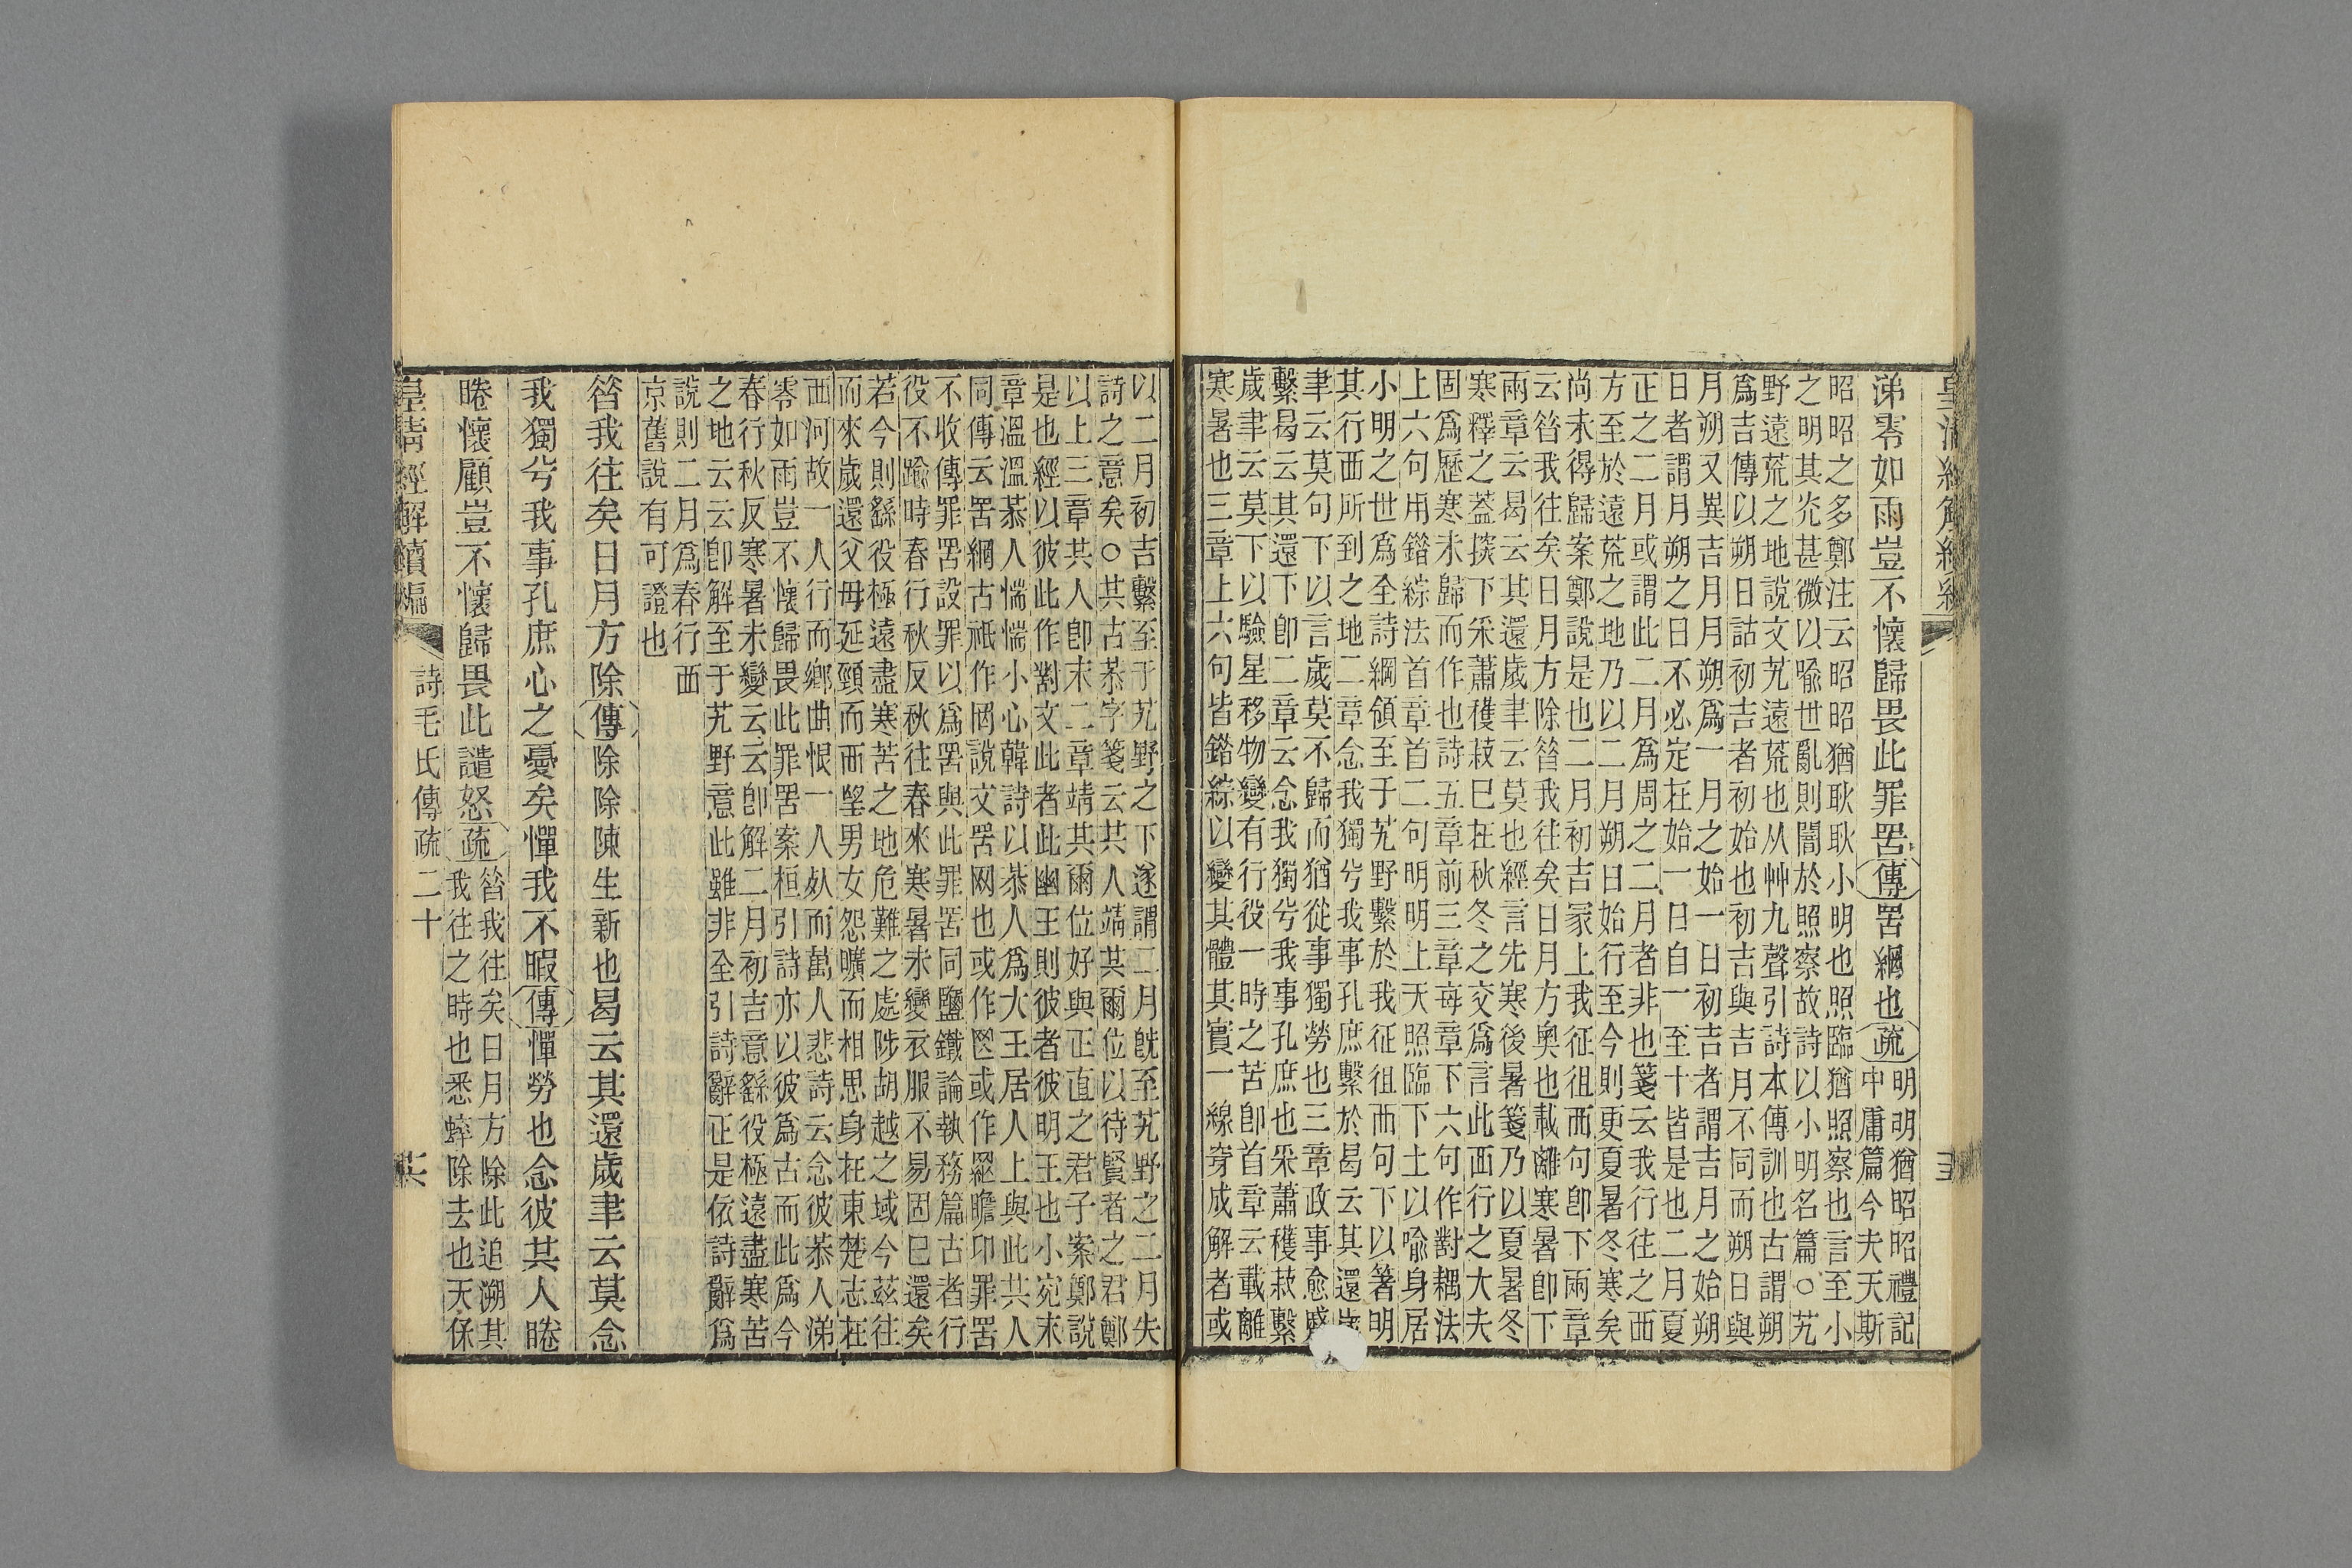 皇清經解續編
涕零如雨豈不懷歸畏此罪罟傳罟網也疏
明明猶昭昭禮記
中庸篇今夫天斯
昭昭之多鄭注云昭昭猶耿耿小明也照臨猶照察也言至小
之明其光甚微以喻世亂則闇於照察故詩以小明名篇○艽
野遠荒之地說文艽遠荒也从艸九聲引詩本傳訓也古謂朔
爲吉傳以朔日詁初吉者初始也初吉與吉月不同而朔日與
月朔又異吉月月朔爲一月之始一日初吉者謂吉月之始朔
日者謂月朔之日不必定在始一日自一至十皆是也二月夏
正之二月或謂此二月爲周之二月者非也箋云我行往之西
方至於遠荒之地乃以二月朔日始行至今則更夏暑冬寒矣
尚未得歸案鄭說是也二月初吉冡上我征徂西句卽下兩章
云昝我往矣日月方除昝我往矣日月方奧也載離寒暑卽下
兩章云曷云其還歲聿云莫也經言先寒後暑箋乃以夏暑冬
寒釋之蓋探下采蕭穫菽巳在秋冬之交爲言此西行之大夫
固爲歷寒未歸而作也詩五章前三章每章下六句作對耦法
上六句用錯綜法首章首二句明明上天照臨下土以喻身居
小明之世爲全詩綱領至于艽野繫於我征徂西句下以箸明
其行西所到之地二章念我獨兮我事孔庶繫於曷云其還歲
聿云莫句下以言歲莫不歸而猶從事獨勞也三章政事愈蹙
繫曷云其還下卽二章云念我獨兮我事孔庶也采蕭穫菽繫
歲聿云莫下以驗星移物變有行役一時之苦卽首章云載離
寒暑也三章上六句皆錯綜以變其體其實一線穿成解者或
以二月初吉繫至于艽野之下遂謂二月旣至艽野之二月失
詩之意矣○共古恭字箋云共人靖共爾位以待賢者之君鄭
以上三章共人卽末二章靖共爾位好與正直之君子案鄭說
是也經以彼此作對文此者此幽王則彼者彼明王也小宛末
章溫溫恭人惴惴小心韓詩以恭人爲大王居人上與此共人
同傳云罟網古祇作罔說文罟网也或作𦉪或作罬瞻卬罪罟
不收傳罪罟設罪以爲罟與此罪罟同鹽鐵論執務篇古者行
役不踰時春行秋反秋往春來寒暑未變衣服不易固巳還矣
若今則繇役極遠盡寒苦之地危難之處陟胡越之域今茲往
而來歲還父母延頸而西望男女怨曠而相思身在東楚志在
西河故一人行而鄉曲恨一人死而萬人悲詩云念彼恭人涕
零如雨豈不懷歸畏此罪罟案桓引詩亦以彼爲古而此爲今
春行秋反寒暑未變云云卽解二月初吉意繇役極遠盡寒苦
之地云云卽解至于艽野意此雖非全引詩辭正是依詩辭爲
說則二月爲春行西
京舊說有可證也
昝我往矣日月方除傳除除陳生新也曷云其還歲聿云莫念
我獨兮我事孔庶心之憂矣憚我不暇傳憚勞也念彼共人睠
睠懷顧豈不懷歸畏此譴怒疏
昝我往矣日月方除此追溯其
我往之時也悉蟀除去也天保
皇清經解續編　詩毛氏傳疏二十